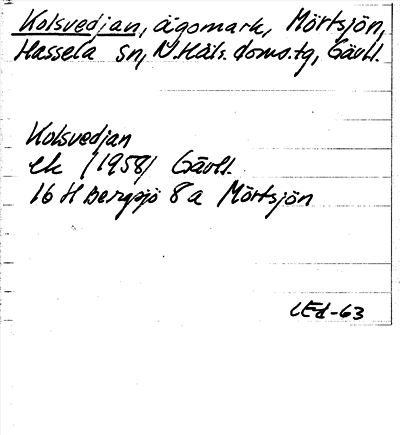 Kolsvedjan, ägomark, Mörtsjön,
Hassela sn, N.Häls. doms.tg, Gävll.
Kolsvedjan
ek /1958/ Gävll.
16 H Bergsjö 8 a Mörtsjön
LEd-63